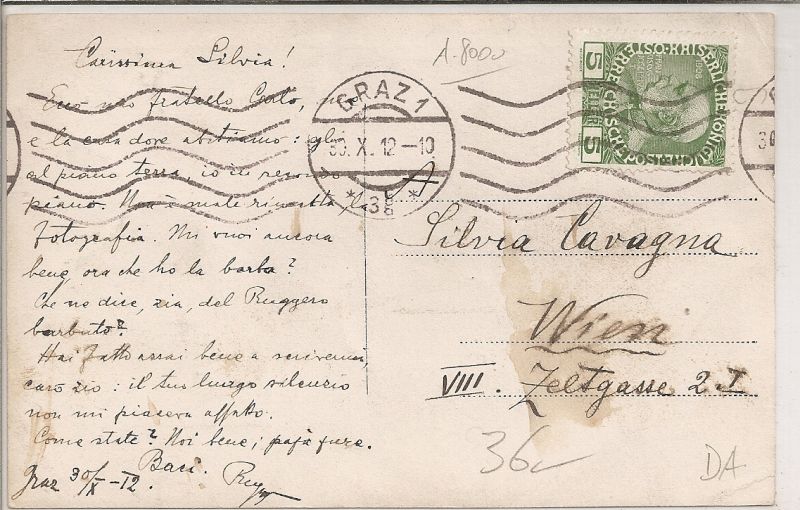 Carissima Silvia!
Ecco mio fratello Carlo, me
e la casa dove abitiamo: gli
al piano terra, io in secondo
piano. Ma è male riuscita la
fotografia. Mi vuoi ancora
bene, ora che ho la barba?
Che ne dice, zia, del Ruggero
barbuto?
Hai fatto assai bene a scrivermi,
caro zio: il tuo lungo silenzio
non mi piaceva affatto.
Come state? Noi bene; papà pure.
Baci.
Graz 30/X-12.
A.8000
GRAZ 1
30.X.12-10
* 3 *
30
5
5
1908
Silvia Cavagna
Wien
VIII. Zeltgasse 2 I
36
DA